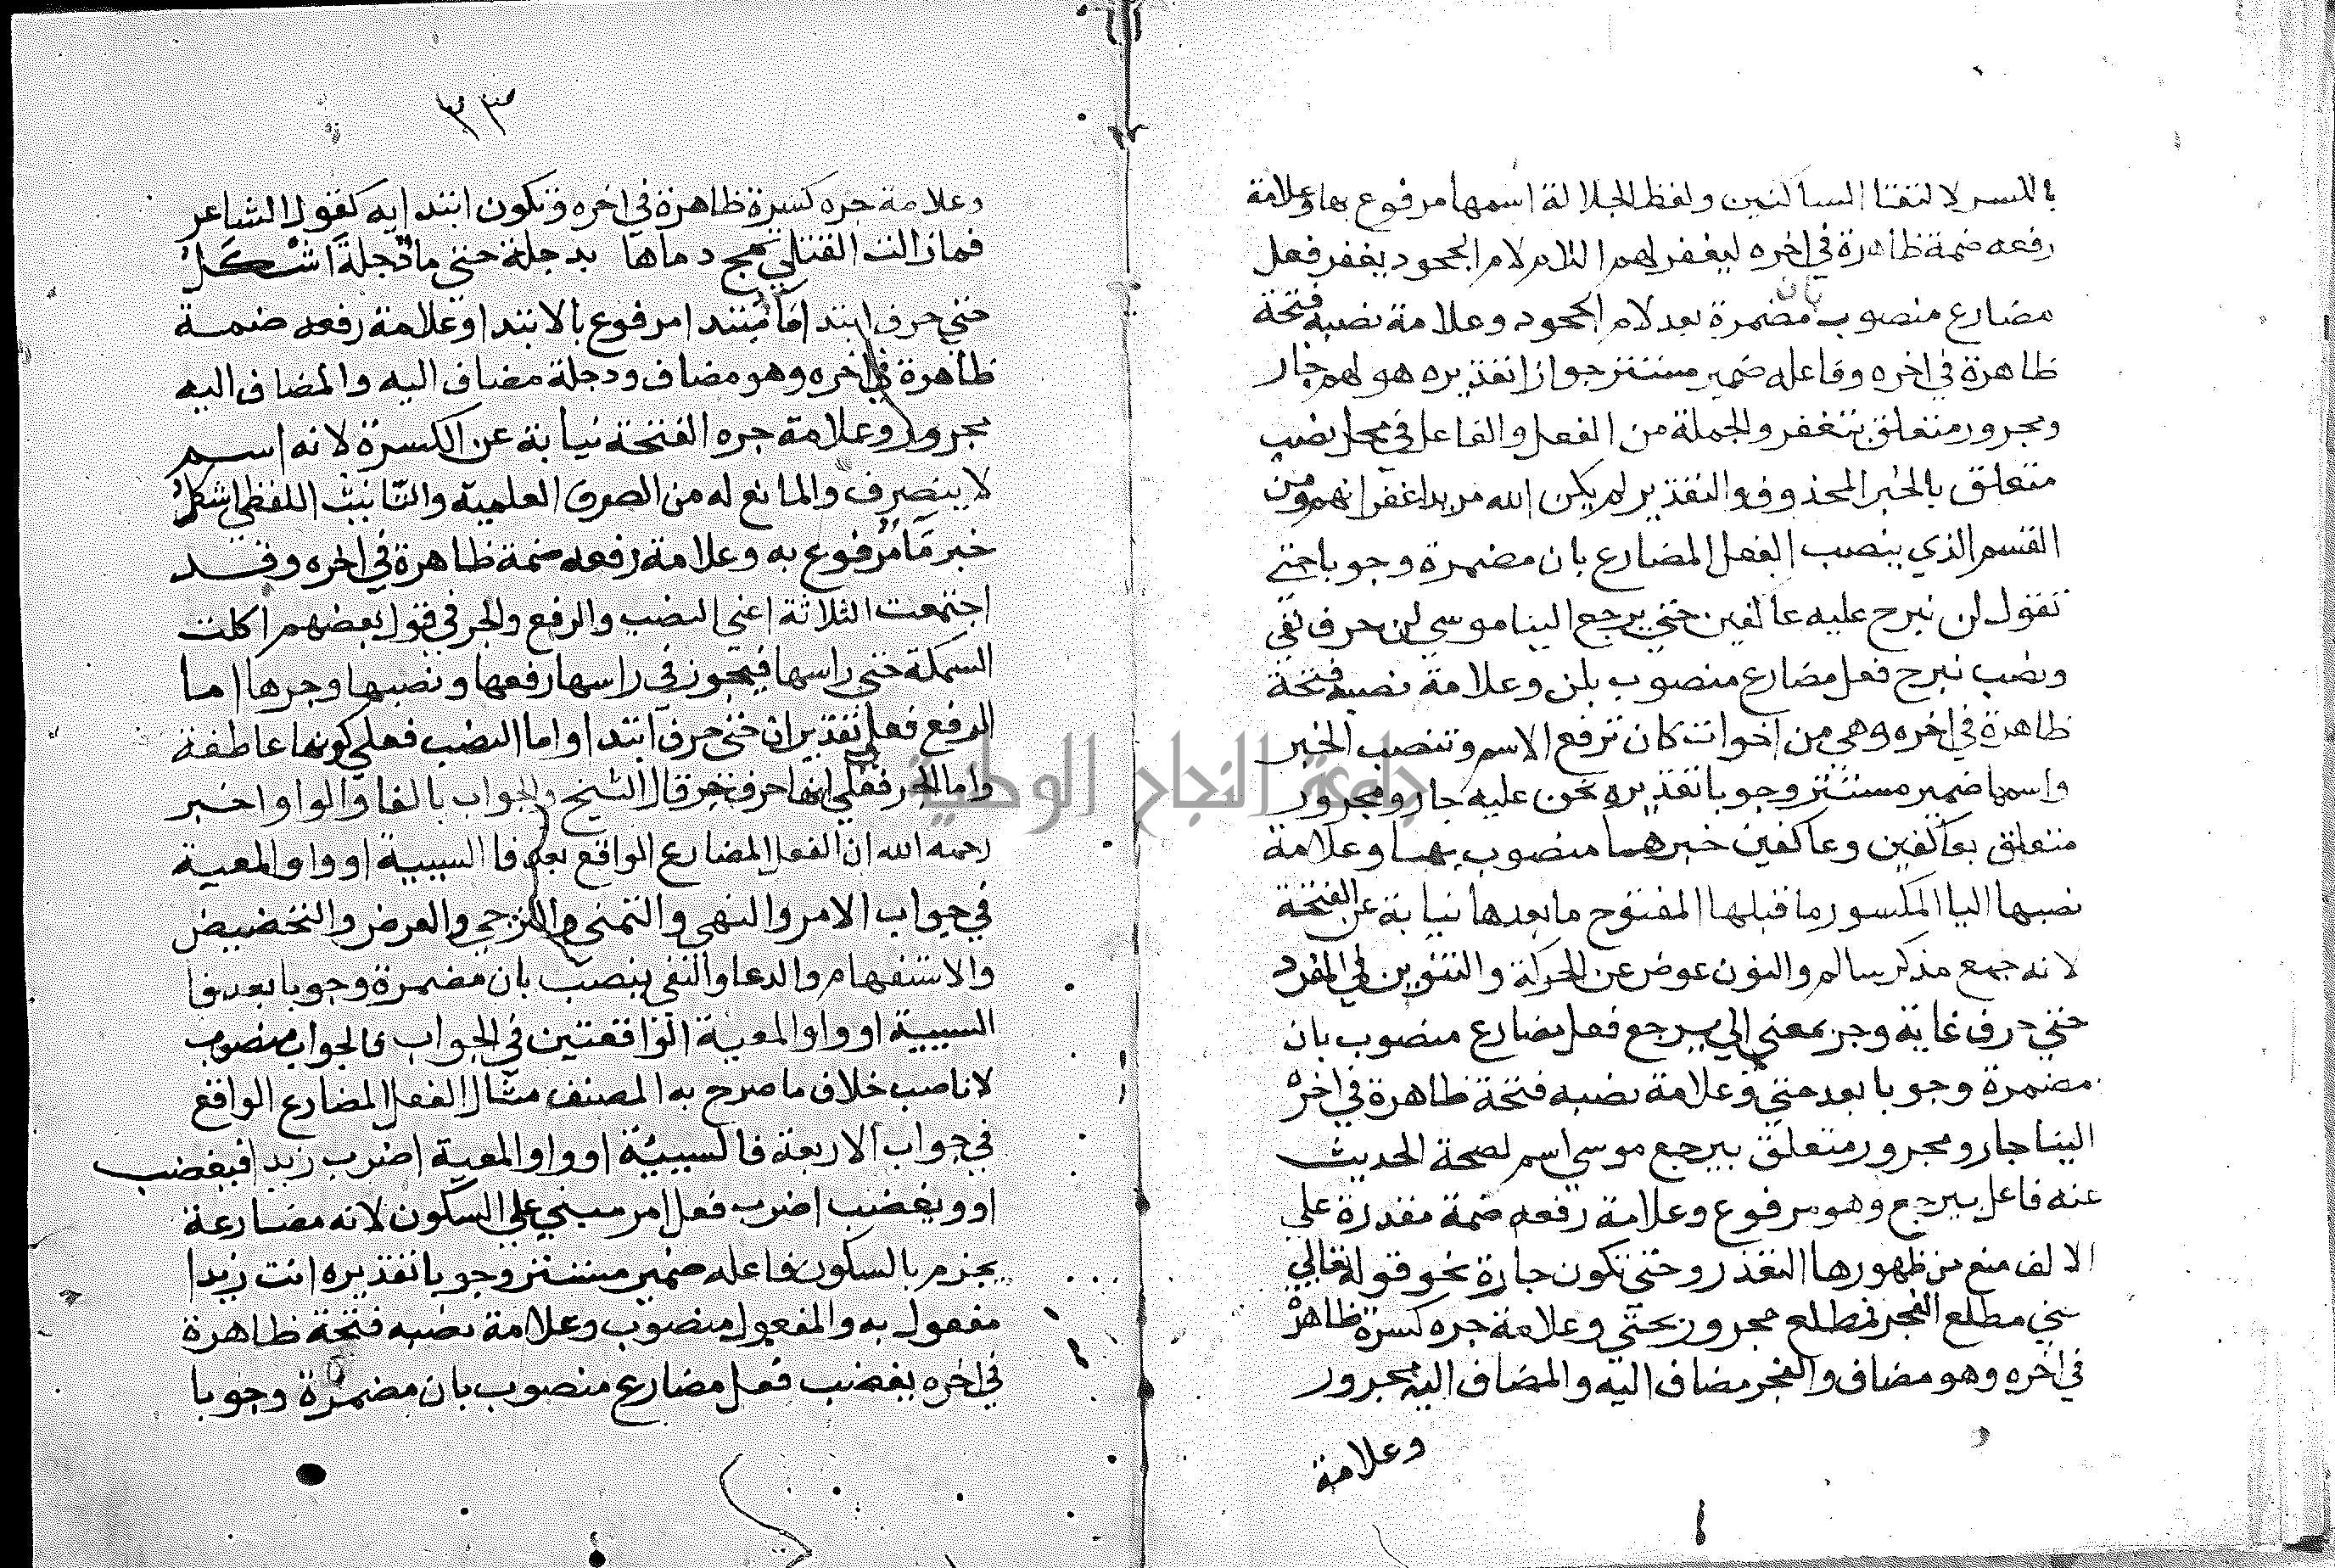 بالكسر لالتقا الساكنين ولفظ الجلالة اسمها مرفوع بها وعلامة
رفعه ضمة ظاهرة في اخره ليغفر لهم اللام لام الجحود يغفر فعل
مضارع منصوب بان مضمرة بعد لام الجحود وعلامة نصبه فتحة
ظاهرة في اخره وفاعله ضمير مستتر جوازا تقديره هو لهم جار
ومجرور متعلق بتغفر والجملة من الفعل والفاعل في محل نصب
متعلق بالخبر المحذوف والتقدير لم يكن الله مريدا غفرانهم ومن
القسم الذي ينصب الفعل المضارع بان مضمرة وجوبا حتى
تقول لن نبرح عليه عاكفين حتى يرجع الينا موسي لن حرف نفي
ونصب نبرح فعل مضارع منصوب بلن وعلامة نصبه فتحة
ظاهرة في اخره وهي من اخوات كان ترفع الاسم وتنصب الخبر
واسمها ضمير مستتر وجوبا تقديره نحن عليه جار ومجرور
متعلق بعاكفين وعاكفين خبرهما منصوب بهما وعلامة
نصبها اليا المكسور ما قبلها المفتوح ما بعدها نيابة عن الفتحة
لانه جمع مذكر سالم والنون عوض عن الحركة والتنوين في المفرد
حتى حرف غاية وجر بمعنى الي يرجع فعل مضارع منصوب بان
مضمرة وجوبا بعد حتي وعلامة نصبه فتحة ظاهرة في اخره
الينا جار ومجرور متعلق بيرجع موسي اسم لصحة الحديث
عنه فاعل بيرجع وهو مرفوع وعلامة رفعه ضمة مقدرة علي
الالف منع من ظهورها التعذر وحتى تكون جارة نحو قوله تعالي
حتي مطلع الفجر فمطلع مجرور بحتي وعلامة جره كسرة ظاهرة
في اخره وهو مضاف والفجر مضاف اليه والمضاف اليه مجرور
وعلامة
٣٣
وعلامة جره كسرة ظاهرة في اخره وتكون ابتدايه كقول الشاعر
فمازالت القتلي تمج دماها بدجلة حتى ما دجلة اشكل
حتي حرف ابتدا ما مبتدا مرفوع بالابتدا وعلامة رفعه ضمة
ظاهرة في اخره وهو مضاف ودجلة مضاف اليه والمضاف اليه
مجرور وعلامة جره الفتحة نيابة عن الكسرة لانه اسم
لا ينصرف والمانع له من الصرف العلمية والتانيث اللفظي اشكل
خبر ما مرفوع به وعلامة رفعه ضمة ظاهرة في اخره وقد
اجتمعت الثلاثة اعني النصب والرفع والجر في قول بعضهم اكلت
السمكة حتى راسها فيجوز في راسها رفعها ونصبها وجرها اما
الرفع فعلي تقدير ان حتى حرف ابتدا واما النصب فعلي كونها عاطفة
واما الجر فعلي انها حرف جر قال الشيخ والجواب بالفا والواو اخبر
رحمه الله ان الفعل المضارع الواقع بعد فا السببية او واو المعية
في جواب الامر والنهي والتمني والترجي والعرض والتخضيض
والاستفهام والدعا والنفي ينصب بان مضمرة وجوبا بعد فا
السببية او واو المعية الواقعتين في الجواب فالجواب منصوب
لا ناصب خلاف ما صرح به المصنف مثال الفعل المضارع الواقع
في جواب الاربعة فا السببية او واو المعية اضرب زيدا فيغضب
او ويغضب اضرب فعل امر مبني علي السكون لانه مضارعة
يجزم بالسكون فاعله ضمير مستتر وجوبا تقديره انت زيدا
مفعول به والمفعول منصوب وعلامة نصبه فتحة ظاهرة
في اخره يغضب فعل مضارع منصوب بان مضمرة وجوبا
جامعة النجاح الوطنية